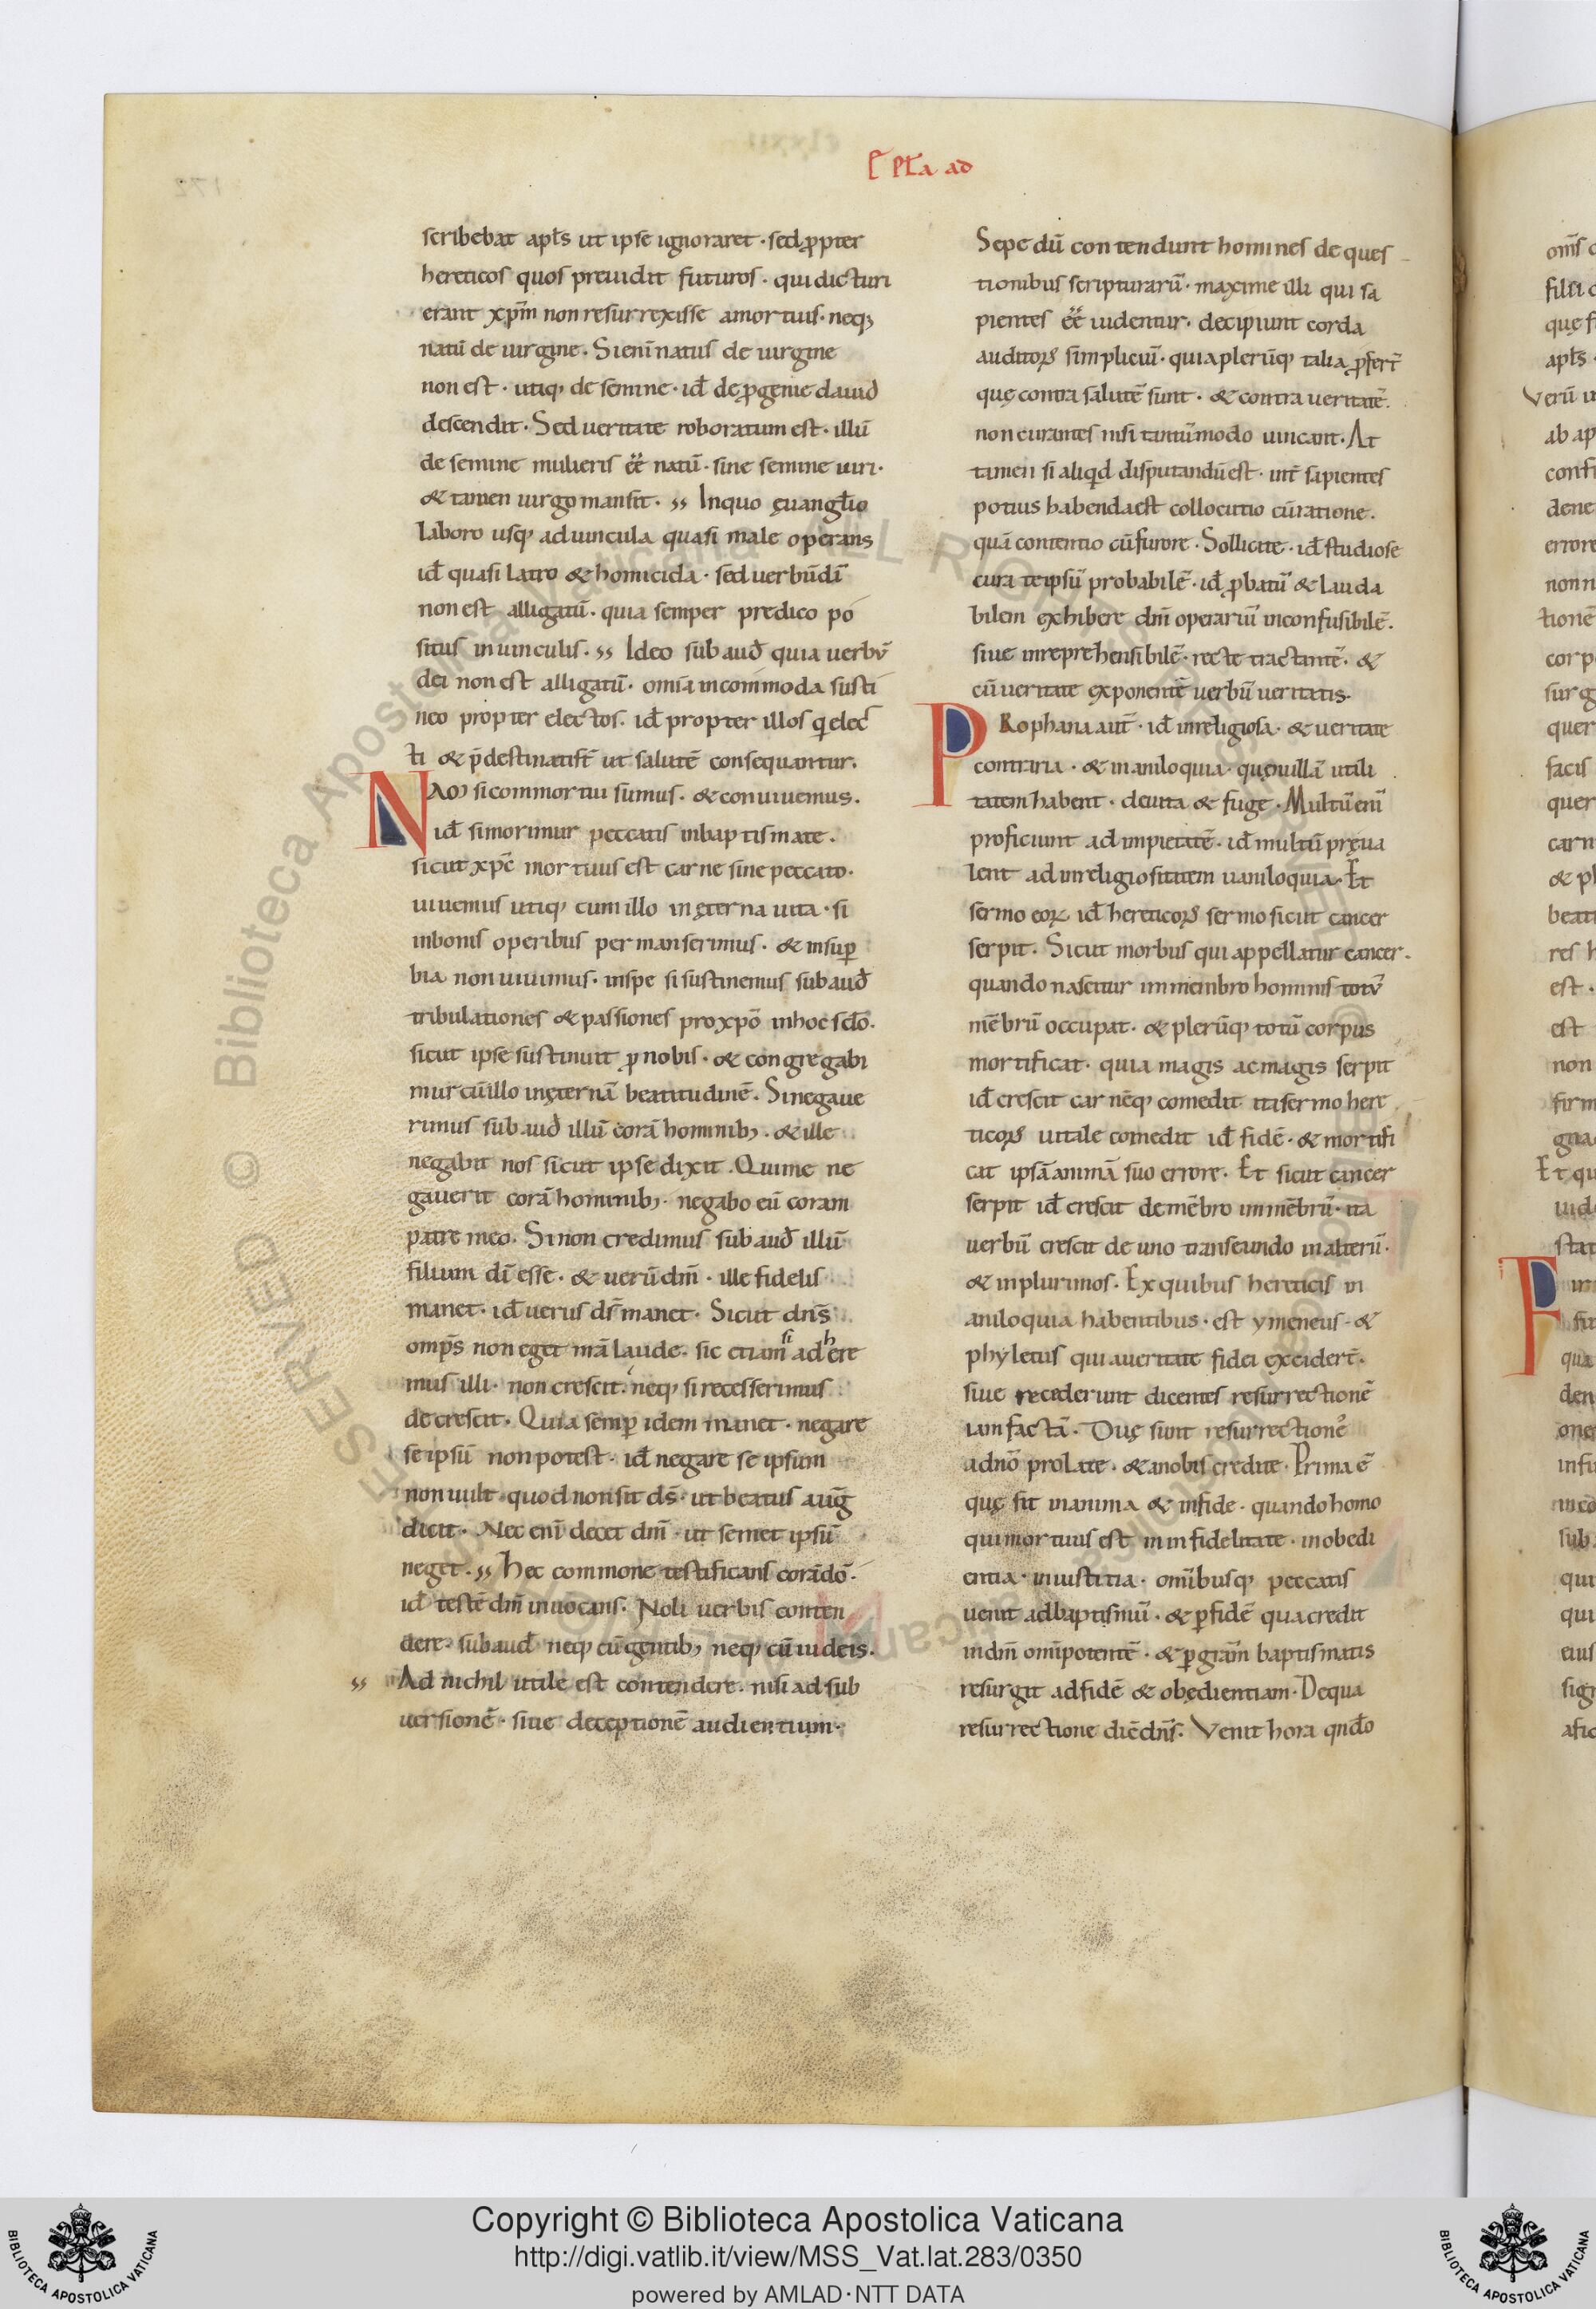 Epła ad
scribebat apłs ut ipse ignoraret · sed ꝓpter
hereticos quos preuidit futuros · qui dicturi
erant xp̄m non resurrexisse amortuis · neqꝫ
natū de uirgine · Si enī natus de uirgine
non est · utiqꝫ de semine · id̄ de ꝓgenie dauid
descendit · Sed ueritate roboratum est · illū
de semine mulieris eē natū · sine semine uiri ·
& tamen uirgo mansit · Inquo ęuangł̄io
Laboro usqꝫ ad uincula quasi male operans
id̄ quasi latro & homicida · sed uerbū dī
non est alligatū · quia semper predico po
situs inuinculis · Ideo subaud̄ quia uerbū
dei non est alligatū · omīa incommoda susti
neo propter electos · id̄ propter illos q̇ elec
ti & p̄destinati s̄t ut salutē consequantur ·
NAM si commortui sumus · & conuiuemus ·
id̄ si morimur peccatis inbaptismate ·
sicut xp̄c mortuus est carne sine peccato ·
uiuemus utiqꝫ cum illo in ęterna uita · si
inbonis operibus permanserimus · & insuꝑ
bia non uiuimus · inspe si sustinemus subaud̄
tribulationes & passiones pro xpō inhoc scło ·
sicut ipse sustinuit ꝓ nobis · & congregabi
mur cū illo in ęternā beatitudinē · Si negaue
rimus subaud̄ illū corā hominibꝫ · & ille
negabit nos sicut ipse dixit · Qui me ne
gauerit corā hominibꝫ · negabo eū coram
patre meo · Si non credimus subaud̄ illū
filium dī esse · & uerū dm̄ · ille fidelis
manet · id̄ uerus ds̄ manet · Sicut dns̄
omp̄s non eget mā laude · sic etiam si adhere
mus illi · non crescit · neqꝫ si recesserimus
decrescit · Quia semꝑ idem manet · negare
se ipsū non potest · id̄ negare se ipsum
non uult quod non sit ds̄ · ut beatus auḡ
dicit · Nec enī decet dm̄ · ut semet ipsū
neget · Hec commone testificans corā dō ·
id̄ testē dm̄ inuocans · Noli uerbis conten
dere · subaud̄ neqꝫ cū gentibꝫ neqꝫ cū iudeis ·
Ad nichil utile est contendere · nisi ad sub
uersionē · siue deceptionē audientium ·
Sepe dū contendunt homines de ques
tionibus scripturarū · maxime illi qui sa
pientes eē uidentur · decipiunt corda
auditoꝝ simpliciū · quia plerūqꝫ talia ꝓfert̄
quę contra salutē sunt · & contra ueritatē ·
non curantes nisi tantūmodo uincant · At
tamen si aliqd̄ disputandū est · int̄ sapientes
potius habenda est collocutio cū ratione ·
quā contentio cū furore · Sollicite · id̄ studiose
cura te ipsū probabilē · id̄ ꝓbatū & lauda
bilem exhibere dm̄ operariū inconfusibilē ·
siue inreprehensibilē · recte tractantē · &
cū ueritate exponentē uerbū ueritatis ·
PRophana aut̄ · id̄ inreligiosa · & ueritate
contraria · & inaniloquia · quę nullā utili
tatem habent · deuita & fuge · Multū enī
proficiunt ad impietatē · id̄ multū pręua
lent ad inreligiositatem uaniloquia · Et
sermo eoꝝ id̄ hereticoꝝ sermo sicut cancer
serpit · Sicut morbus qui appellatur cancer ·
quando nascitur in membro hominis totū
mēbrū occupat · & plerūqꝫ totū corpus
mortificat · quia magis ac magis serpit
id̄ crescit carnēqꝫ comedit ita sermo here
ticoꝝ uitale comedit id̄ fidē · & mortifi
cat ipsā animā suo errore · Et sicut cancer
serpit id̄ crescit de mēbro in mēbrū · ita
uerbū crescit de uno transeundo in alterū ·
& in plurimos · Ex quibus hereticis in
aniloquia habentibus · est ymeneus · &
phyletus qui aueritate fidei excidert̄ ·
siue recederunt dicentes resurrectionē
iam factā · Duę sunt resurrectiones
a dnō prolate · & anobis credite · Prima ē
quę fit in anima & in fide · quando homo
qui mortuus est in infidelitate · inobedi
entia · iniustitia · omībusqꝫ peccatis
uenit ad baptismū · & ꝑ fidē qua credit
in dm̄ omīpotentē · & ꝑ gr̄am baptismatis
resurgit ad fidē & obędientiam · De qua
resurrectione dic̄ dns̄ · Venit hora qnd̄o
Copyright © Biblioteca Apostolica Vaticana
http://digi.vatlib.it/view/MSS_Vat.lat.283/0350
powered by AMLAD·NTT DATA
BIBLIOTECA APOSTOLICA VATICANA
BIBLIOTECA APOSTOLICA VATICANA